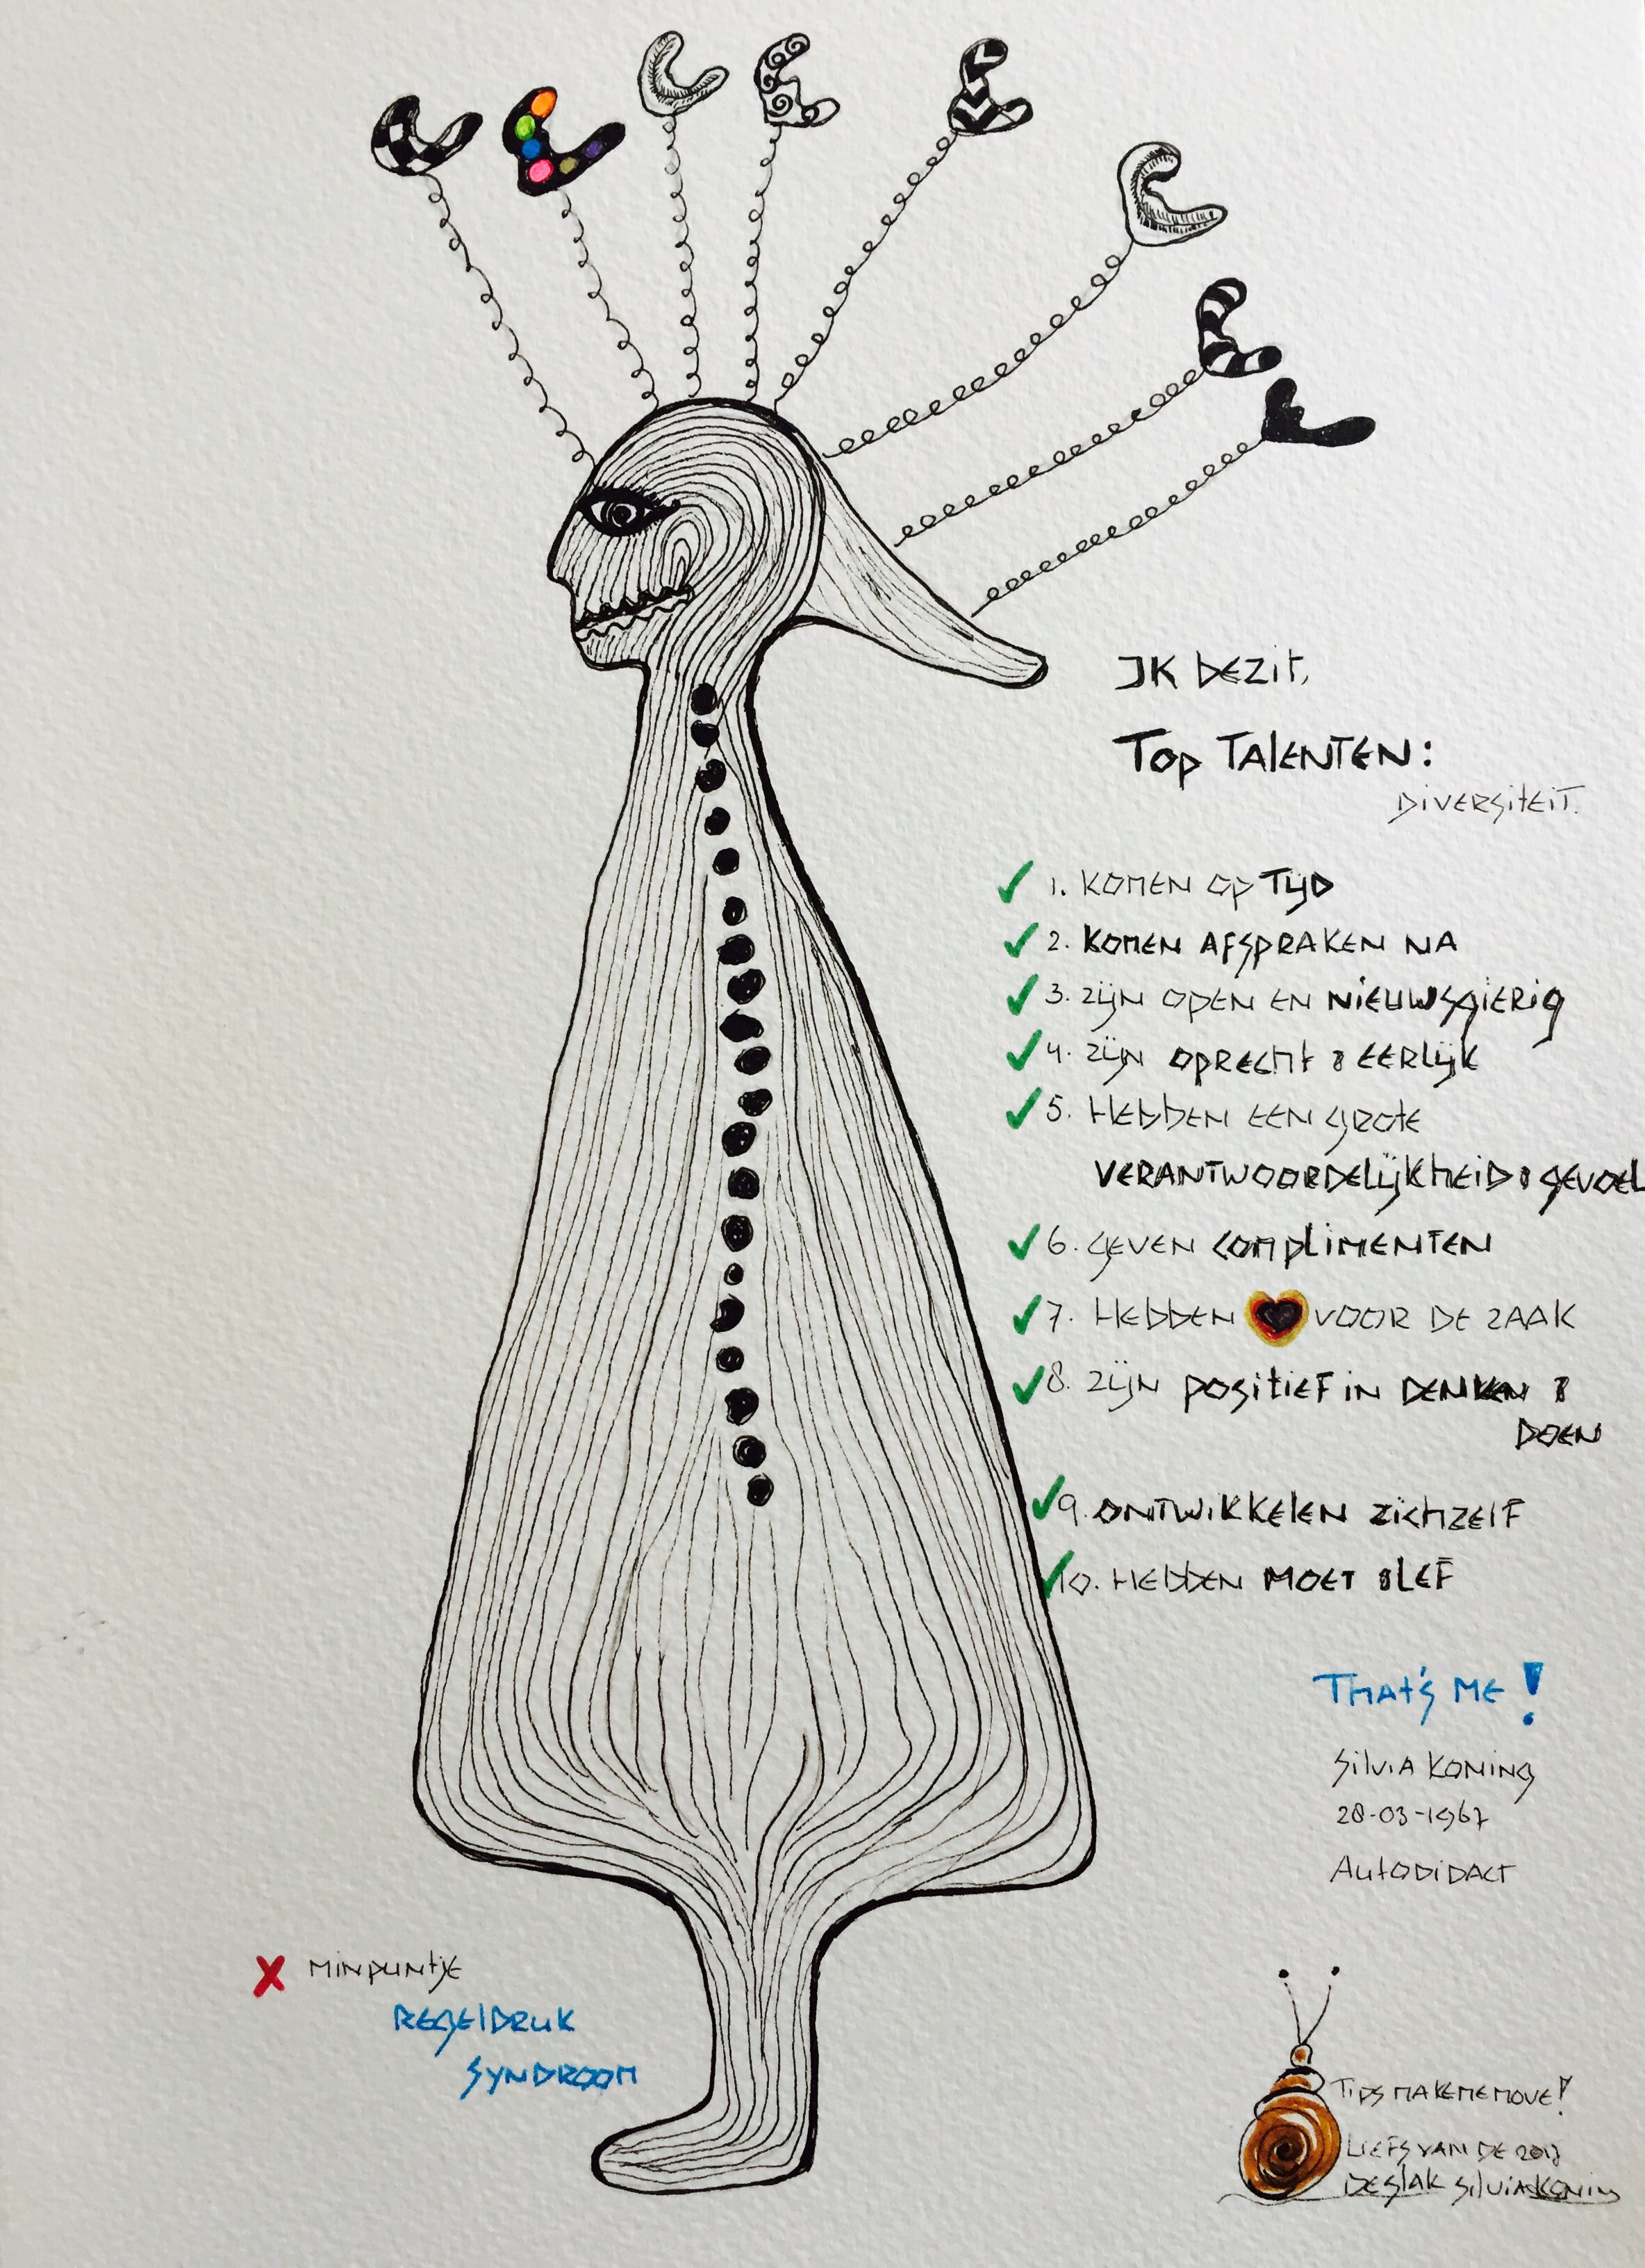 IK BEZIT,
TOP TALENTEN:
DIVERSITEIT.
1. KOMEN OP TIJD
2. KOMEN AFSPRAKEN NA
3. ZIJN OPEN EN NIEUWSGIERIG
4. ZIJN OPRECHT & EERLIJK
5. HEBBEN EEN GROTE
VERANTWOORDELIJKHEID & GEVOEL
6. GEVEN COMPLIMENTEN
7. HEBBEN ❤ VOOR DE ZAAK
8. ZIJN POSITIEF IN DENKEN &
DOEN
9. ONTWIKKELEN ZICHZELF
10. HEBBEN MOET & LEF
THAT'S ME!
SILVIA KONING
28-03-1967
AUTODIDACT
X MINPUNTJE
REGELDRUK
SYNDROOM
TIPS MAKE ME MOVE!
LIEFS VAN DE 2017
DESLAK SILVIA KONING